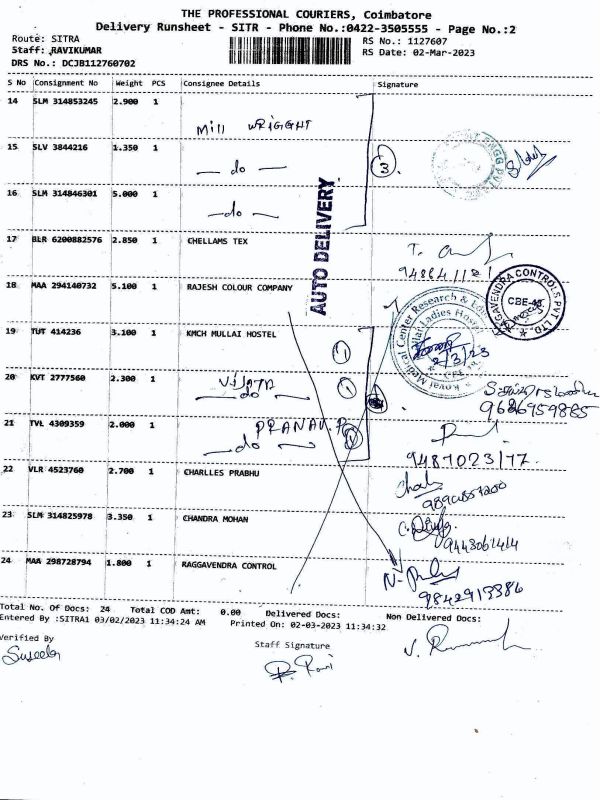 THE PROFESSIONAL COURIERS, Coimbatore
Delivery Runsheet - SITR - Phone No.:0422-3505555 - Page No.:2
Route: SITRA
RS No.: 1127607
Staff: RAVIKUMAR
RS Date: 02-Mar-2023
DRS No.: DCJB112760702
S No Consignment No Weight PCS Consignee Details Signature
14 SLM 314853245 2.900 1
Mill WRIGGHT
15 SLV 3844216 1.350 1
do
3
16 SLM 314846301 5.000 1
do
AUTO DELIVERY
17 BLR 6200882576 2.850 1 CHELLAMS TEX
T.
18 MAA 294140732 5.100 1 RAJESH COLOUR COMPANY
RAGAVENDRA CONTROLS PVT. LTD.
CBE-
Kovai Medical Center Research &
Ladies Hostel
19 TUT 414236 3.100 1 KMCH MULLAI HOSTEL
1
2/3/23
20 KVT 2777560 2.300 1
do
1
9686959865
21 TVL 4309359 2.000 1
PRANAV.P
do
9487023177
22 VLR 4523760 2.700 1 CHARLLES PRABHU
23 SLM 314825978 3.350 1 CHANDRA MOHAN
9443061414
24 MAA 298728794 1.800 1 RAGGAVENDRA CONTROL
9842913386
Total No. Of Docs: 24 Total COD Amt: 0.00 Delivered Docs: Non Delivered Docs:
Entered By :SITRA1 03/02/2023 11:34:24 AM Printed On: 02-03-2023 11:34:32
Verified By
Staff Signature
Suseela
R. Ravi